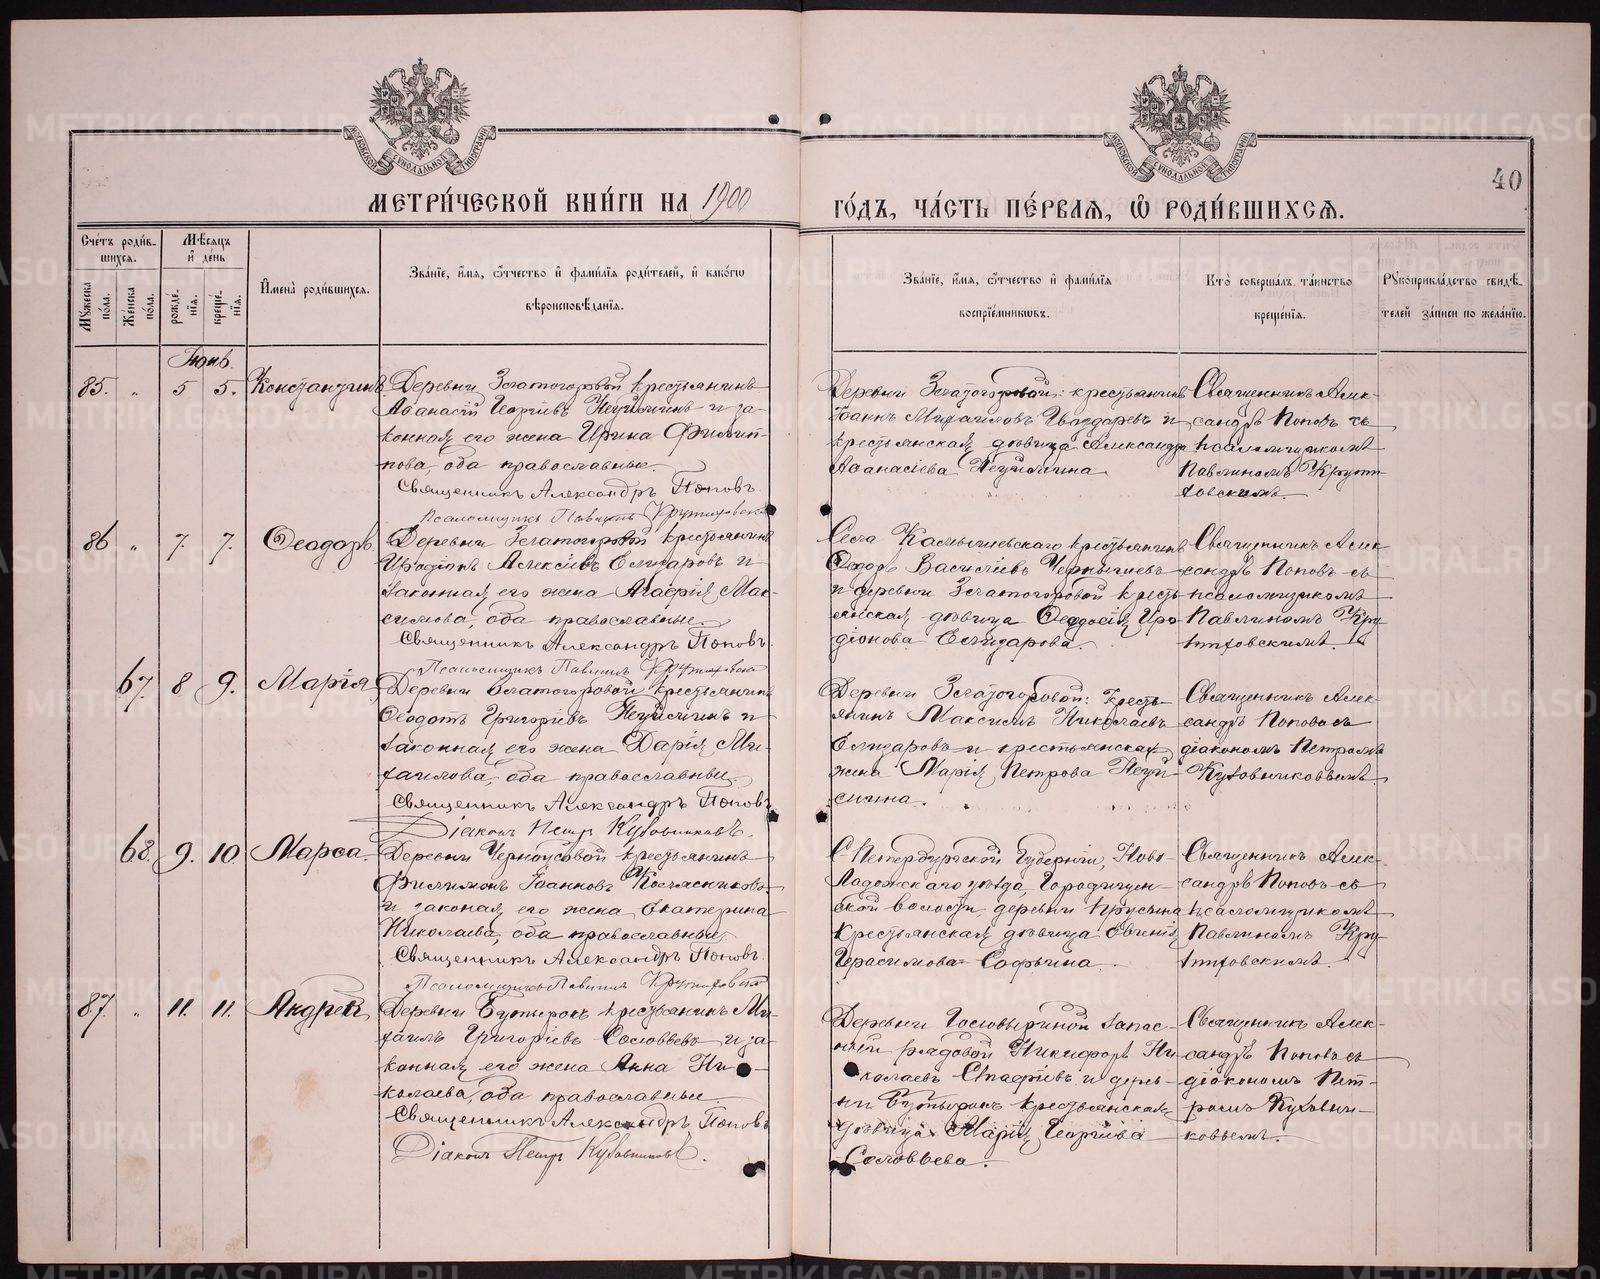 МЕТРИ́ЧЕСКОЙ КНИ́ГИ НА 1900
ГО́ДЪ, ЧА́СТЬ ПЕ́РВАЯ, Ѡ҆ РОДИ́ВШИХСЯ.
40
Сче́тъ роди́в-
шихся.
Мѣ́сяцъ
и҆ де́нь
Мꙋ́жеска
по́ла.
Же́нска
по́ла.
рожде́-
нїя.
креще́-
нїя.
И҆мена̀ роди́вшихся.
Зва́нїе, и҆́мя, ѻ҆́тчество и҆ фами́лїя роди́телей, и҆ како́гѡ
вѣроисповѣ́данїя.
Зва́нїе, и҆́мя, ѻ҆́тчество и҆ фами́лїя
воспрїе́мникѡвъ.
Кто̀ соверша́лъ та́инство
креще́нїя.
Рꙋкоприкла́дство свидѣ́-
телей за́писи по жела́нїю.
Іюнь
85. " 5 5. Константинъ
Деревни Златогоровой крестьянинъ
Аѳанасій Георгіевъ Неуйминъ и за-
конная его жена Ирина Филип-
пова, оба православные.
Священникъ Александръ Поповъ
Деревни Златогоровой: крестьянинъ
Іоаннъ Михаиловъ и
крестьянская дѣвица Александра
Аѳанасіева Неуймина
Священникъ Алек-
сандръ Поповъ съ
псаломщикомъ
Павлиномъ Крути-
ховскимъ.
86 " 7. 7. Ѳеодоръ.
Деревни Златогоровой крестьянинъ
Иродіонъ Алексіевъ Елизаровъ и
законная его жена Агафія Мак-
симова, оба православные.
Священникъ Александръ Поповъ
Псаломщикъ Павлинъ Крутиховскій
Села крестьянинъ
Ѳеодоръ Василіевъ Чернышевъ
и деревни Златогоровой кресть-
янская дѣвица Ѳеодосія Иро-
діонова Елизарова.
Священникъ Алек-
сандръ Поповъ съ
псаломщикомъ
Павлиномъ Кру-
тиховскимъ.
67. 8 9. Марія
Деревни Златогоровой крестьянинъ
Ѳеодотъ Григоріевъ Неуйминъ и
законная его жена Дарія Ми-
хаилова, оба православные.
Священникъ Александръ Поповъ
Діаконъ Петръ Кубовниковъ.
Деревни Златогоровой: кресть-
янинъ Максимъ Николаевъ
Елизаровъ и крестьянская
жена Марія Петрова Неуй-
мина.
Священникъ Алек-
сандръ Поповъ съ
діакономъ Петромъ
68. 9. 10. Марѳа.
Деревни Черноусовой крестьянинъ
Филимонъ Іоанновъ
и законая его жена Екатерина
Николаева, оба православные,
Священникъ Александръ Поповъ
Псаломщикъ Павлинъ Крутиховскій
С-Петербургской Губерніи, Ново-
Ладожскаго уѣзда, Городищен-
ской волости, деревни
крестьянская дѣвица Евгенія
Герасимова
Священникъ Алек-
сандръ Поповъ съ
псаломщикомъ
Павлиномъ Кру-
тиховскимъ.
87. " 11. 11. Андрей
Деревни Бутырокъ крестьянинъ Ми-
хаилъ Григоріевъ Соловьевъ и за-
конная его жена Анна Ни-
колаева, оба православные.
Священникъ Александръ Поповъ
Діаконъ Петръ Кубовниковъ.
Деревни Головыриной запас-
ный рядовой Никифоръ Ни-
колаевъ и дерев-
ни Бутырокъ крестьянская
дѣвица Марія Георгіева
Соловьева.
Священникъ Алек-
сандръ Поповъ съ
діакономъ Пет-
ромъ
METRIKI.GASO-URAL.RU